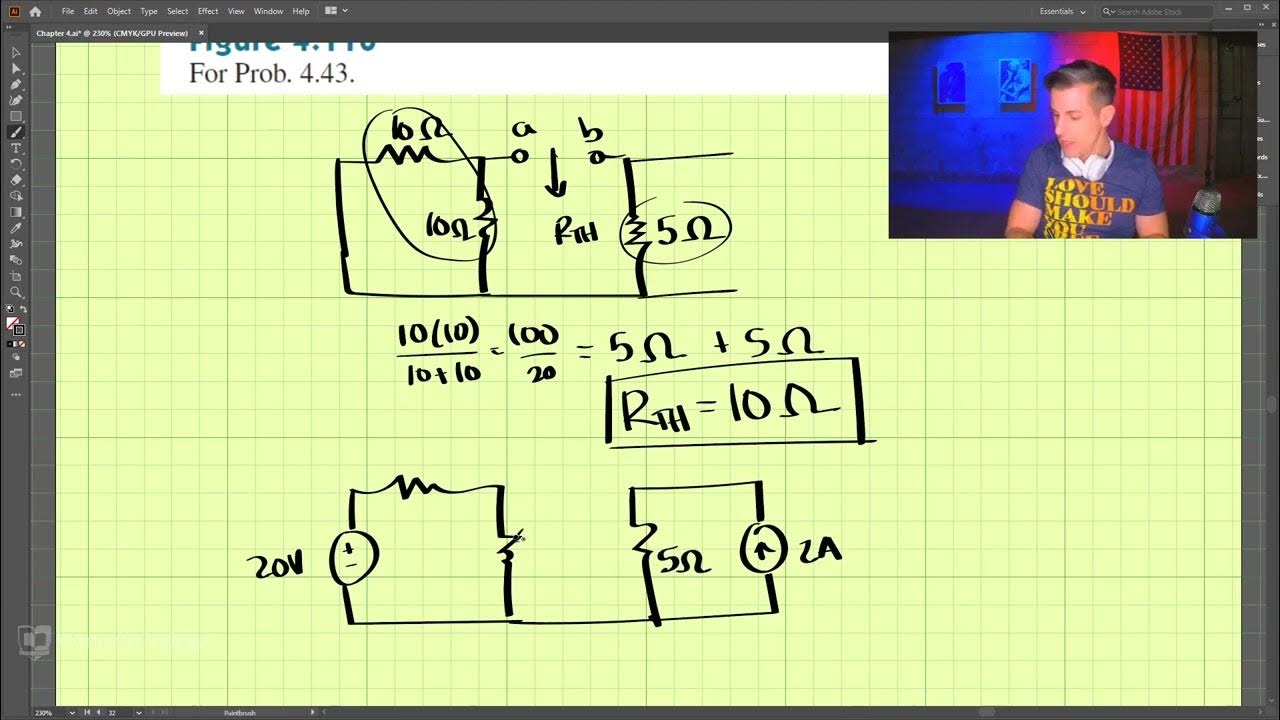 Ai File Edit Object Type Select Effect View Window Help Essentials Search Adobe Stock
Chapter 4.ai* @ 230% (CMYK/GPU Preview) ×
For Prob. 4.43.
10Ω a b
10Ω RTH 5Ω
10(10)/10+10 = 100/20 = 5Ω + 5Ω
RTH = 10Ω
20V + - 5Ω 2A
LOVE
SHOULD
MAKE
YOU
230% 32 Paintbrush